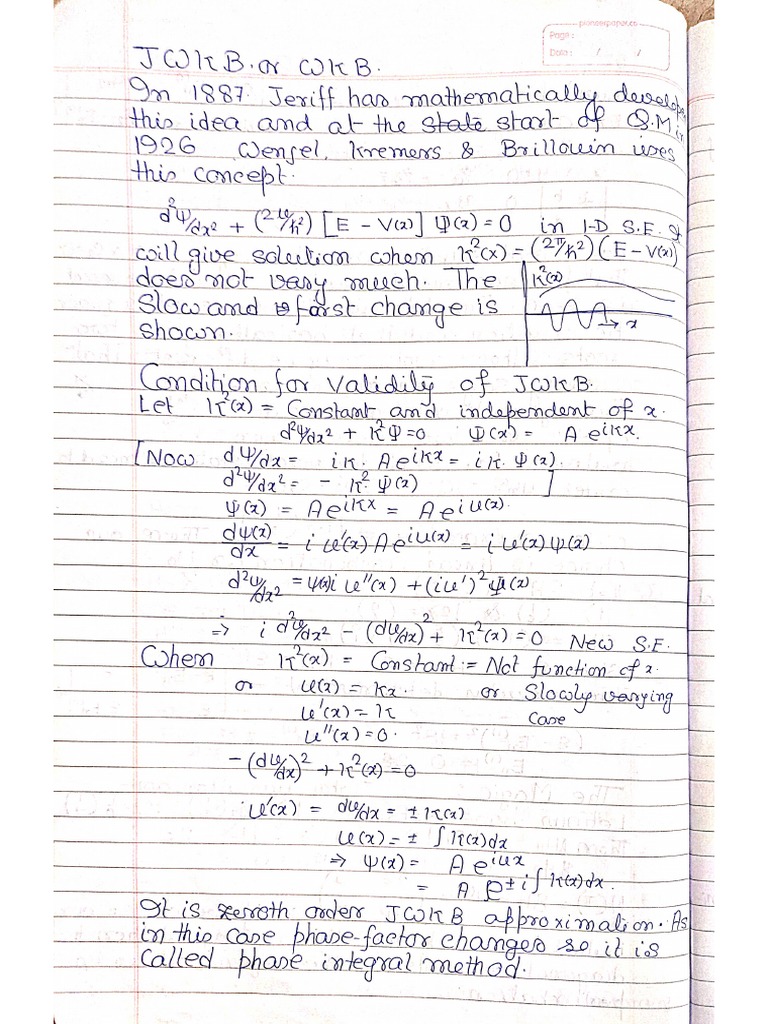 pioneerpaper.co
Page :
Date : / /
JWKB. or WKB.
In 1887 Jeriff has mathematically develope
this idea and at the state start of Q.M in
1926 Wenfel, Kremers & Brillouin uses
this concept.
d²ψ/dx² + (2μ/ħ²) [E - V(x)] ψ(x) = 0 in 1-D S.E. It
will give solution when K²(x) = (2π/ħ²)(E - V(x))
does not vary much. The
K²(x)
Slow and farst change is
→ x
shown.
Condition for validity of JWKB.
Let K²(x) = Constant and independent of x.
d²ψ/dx² + K²ψ = 0 ψ(x) = A e^{iKx}.
[Now dψ/dx = iK. A e^{iKx} = iK. ψ(x).
d²ψ/dx² = - K². ψ(x) ]
ψ(x) = A e^{iKx} = A e^{iu(x)}.
dψ(x)/dx = i u'(x) A e^{iu(x)} = i u'(x) ψ(x)
d²ψ/dx² = ψ(x) i u''(x) + (iu')² ψ(x)
⇒ i d²u/dx² - (du/dx)² + K²(x) = 0 New S.E.
When K²(x) = Constant = Not function of x.
or u(x) = Kx or Slowly varying
u'(x) = K case
u''(x) = 0.
-(du/dx)² + K²(x) = 0
u'(x) = du/dx = ± K(x)
u(x) = ± ∫ K(x) dx
⇒ ψ(x) = A e^{iux}
= A e^{± i ∫ K(x) dx}.
It is zeroth order JWKB approximation. As
in this case phase-factor changes so it is
called phase integral method.